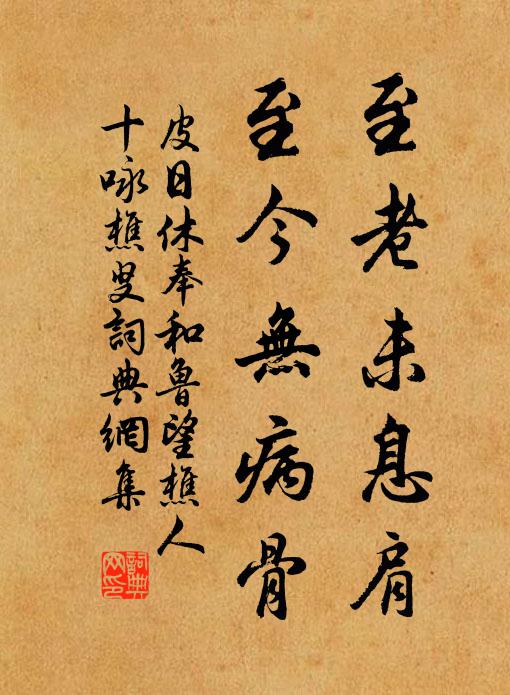 至老未息肩
至今無病骨
皮日休奉和魯望樵人
十咏樵叟詞典網集
詞典网印